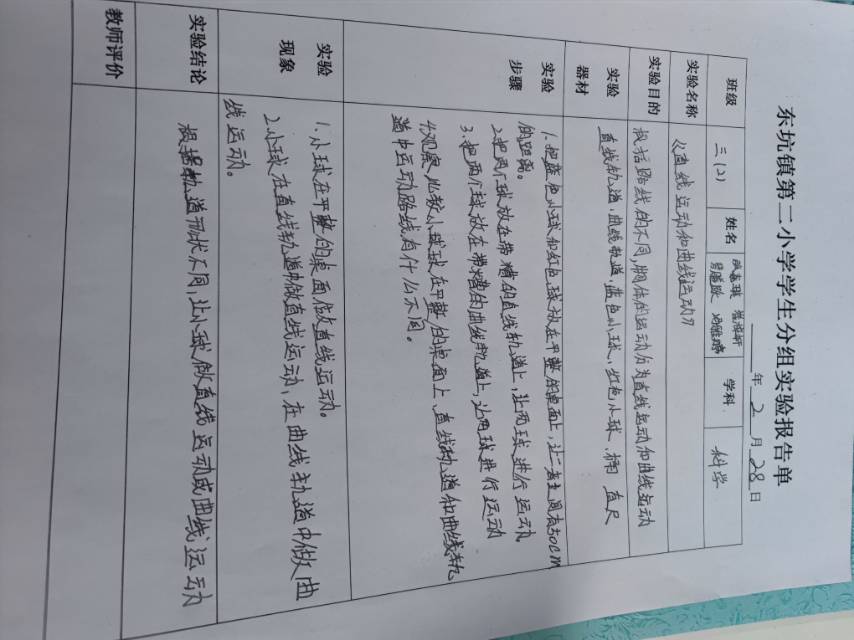 东坑镇第二小学学生分组实验报告单
年 2 月 28 日
班级 三(2) 姓名 学科 科学
实验名称 《直线运动和曲线运动》
实验目的 根据路线的不同,物体的运动分为直线运动和曲线运动
实验器材 直线轨道,曲线轨道,蓝色小球,红色小球, 直尺
实验步骤 1.把蓝色小球和红色球放在平整的桌面上,让 50cm
的距离。
2.把两个球放在带槽的直线轨道上,让两球进行运动
3.把两个球放在带槽的曲线轨道上,让两球进行运动
4.观察比较小球球在平整的桌面上、直线轨道和曲线轨
道中运动路线有什么不同。
实验现象 1.小球在平整的桌面做直线运动。
2.小球在直线轨道中做直线运动,在曲线轨道中做曲
线运动。
实验结论 根据轨道形状不同,让小球做直线运动或曲线运动
教师评价